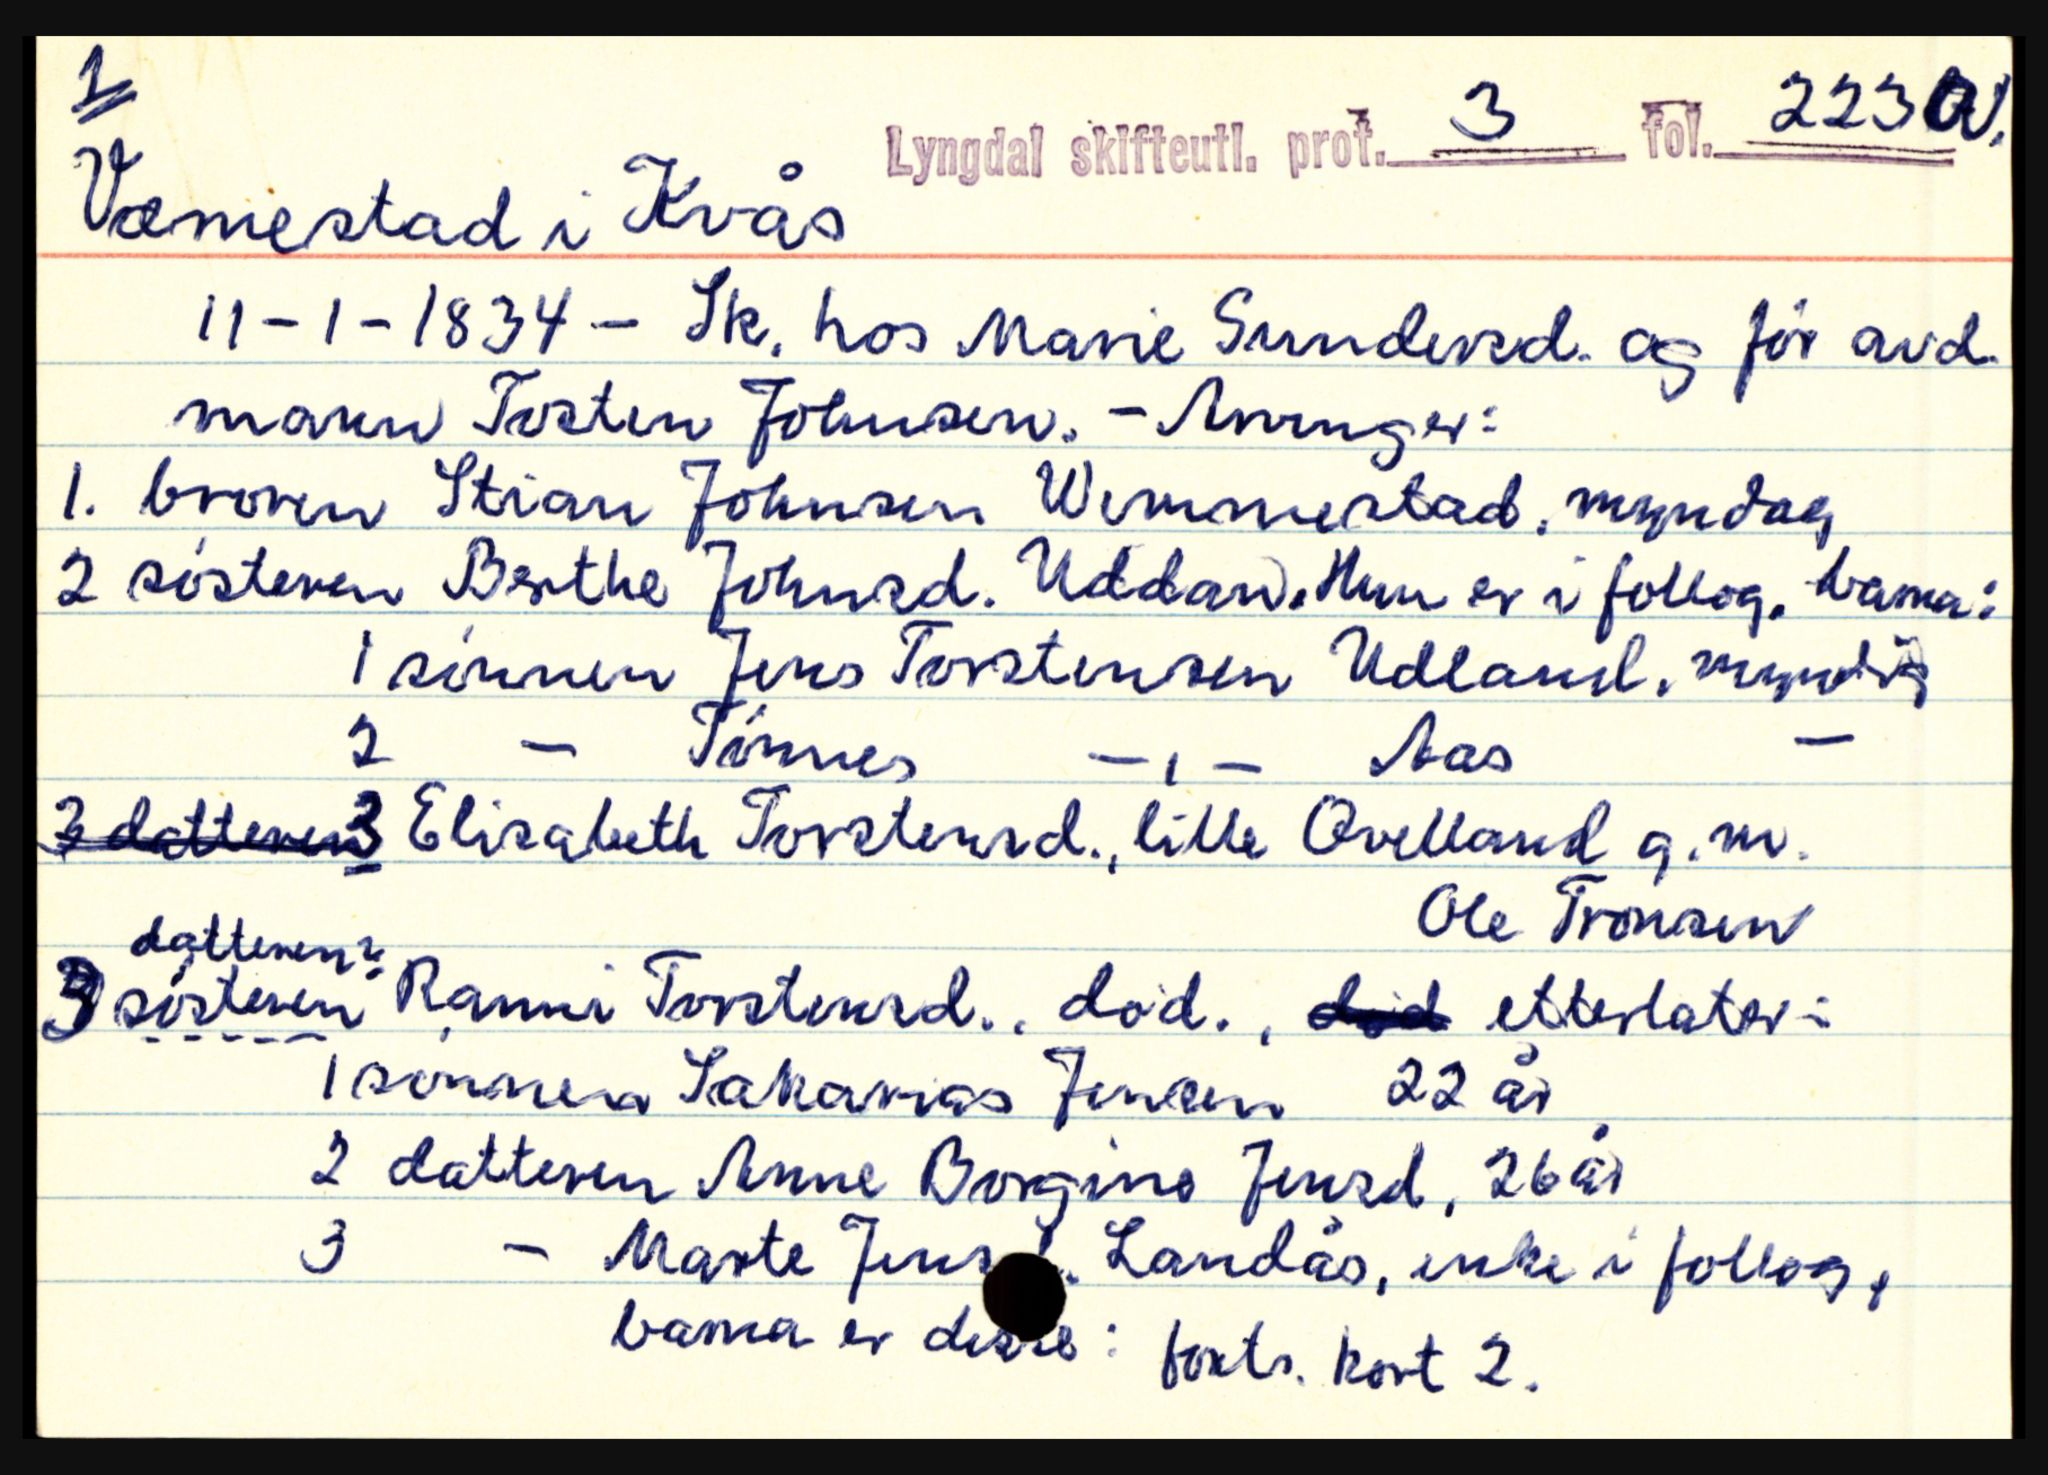 1
Lyngdal skifteutl. prot. 3 fol. 223 a.
Væmestad i Kvås
11-1-1834 - Sk. hos Marie Sundersd. og för avd.
mann Tosten Johnsen. - Arvinger:
1. broren Stian Johnsen Wemmestad, myndag
2 sösteren Berthe Johnsd. Uddan. Hun er i follog. barna:
1 sönnen Jens Torstensen Udland, myndig
2 - Tönnes -,- Aas -
3 datteren 3 Elisabeth Torstensd., lille Ovelland g.m.
Ole Tronsen
datteren?
3 sösteren Ranni Torstensd., död., död etterlater:
1 sönnen Sakarias Jensen 22 år
2 datteren Anne Borgine Jensd, 26 år
3 - Marte Jensd. Landås, enke i follog,
barna er disse: forts. kort 2.